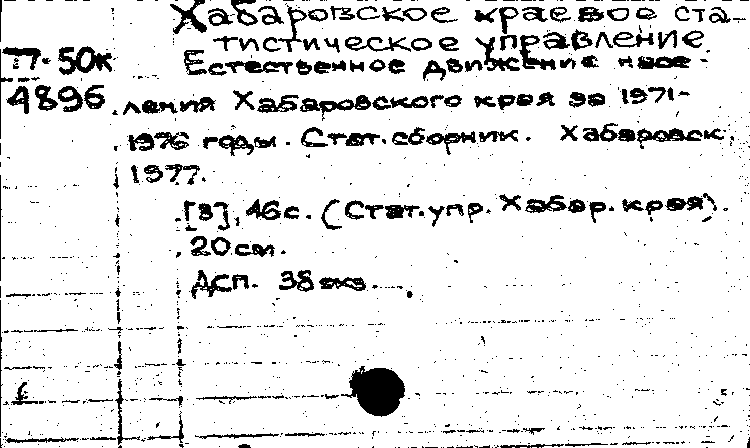 Хабаровское краевое ста-
тистическое управление
77-50к
Естественное движение насе-
4896
ления Хабаровского края за 1971-
1976 годы. Стат. сборник. Хабаровск,
1977.
[3], 46с. (Стат. упр. Хабар. края).
20 см.
ДСП. 38 экз.